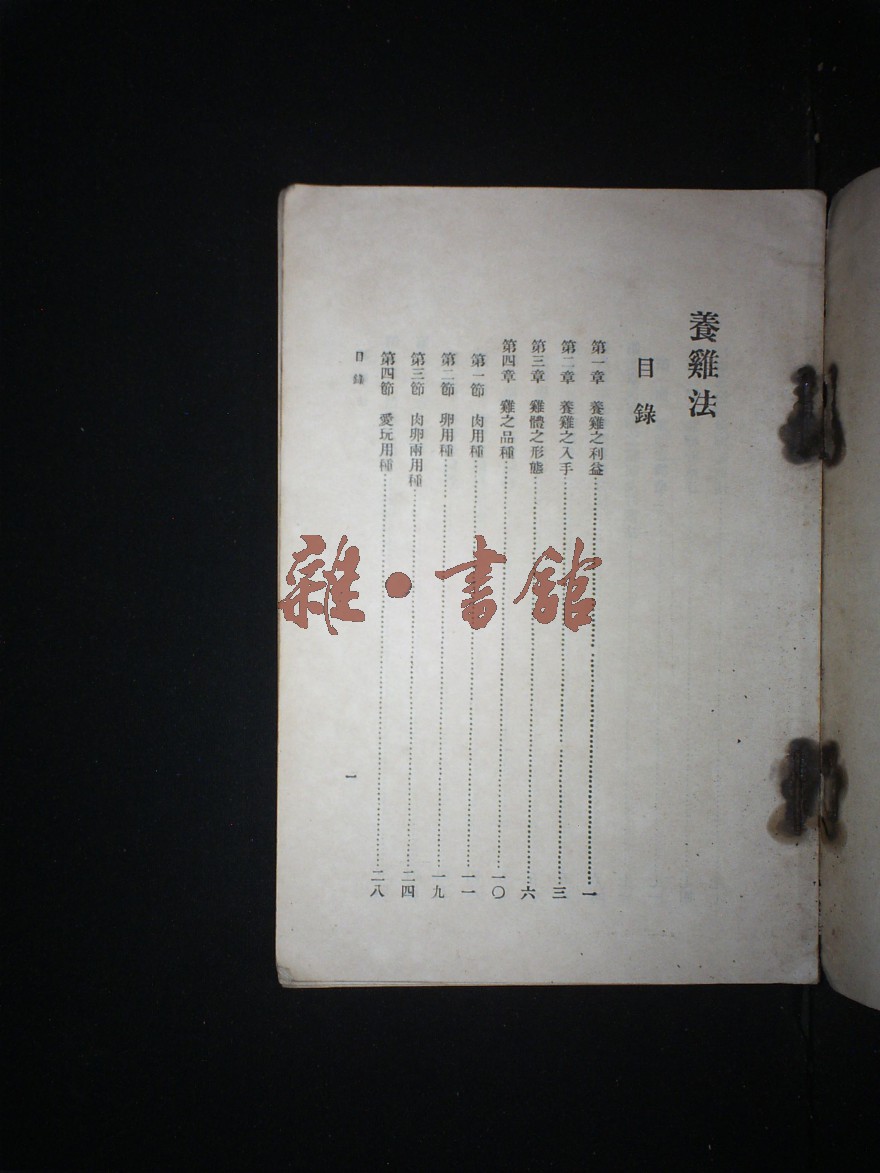 養雞法
目錄
第一章　養雞之利益……一
第二章　養雞之入手……三
第三章　雞體之形態……六
第四章　雞之品種……一〇
第一節　肉用種……一一
第二節　卵用種……一九
第三節　肉卵兩用種……二四
第四節　愛玩用種……二八
目錄
一
雜·書館